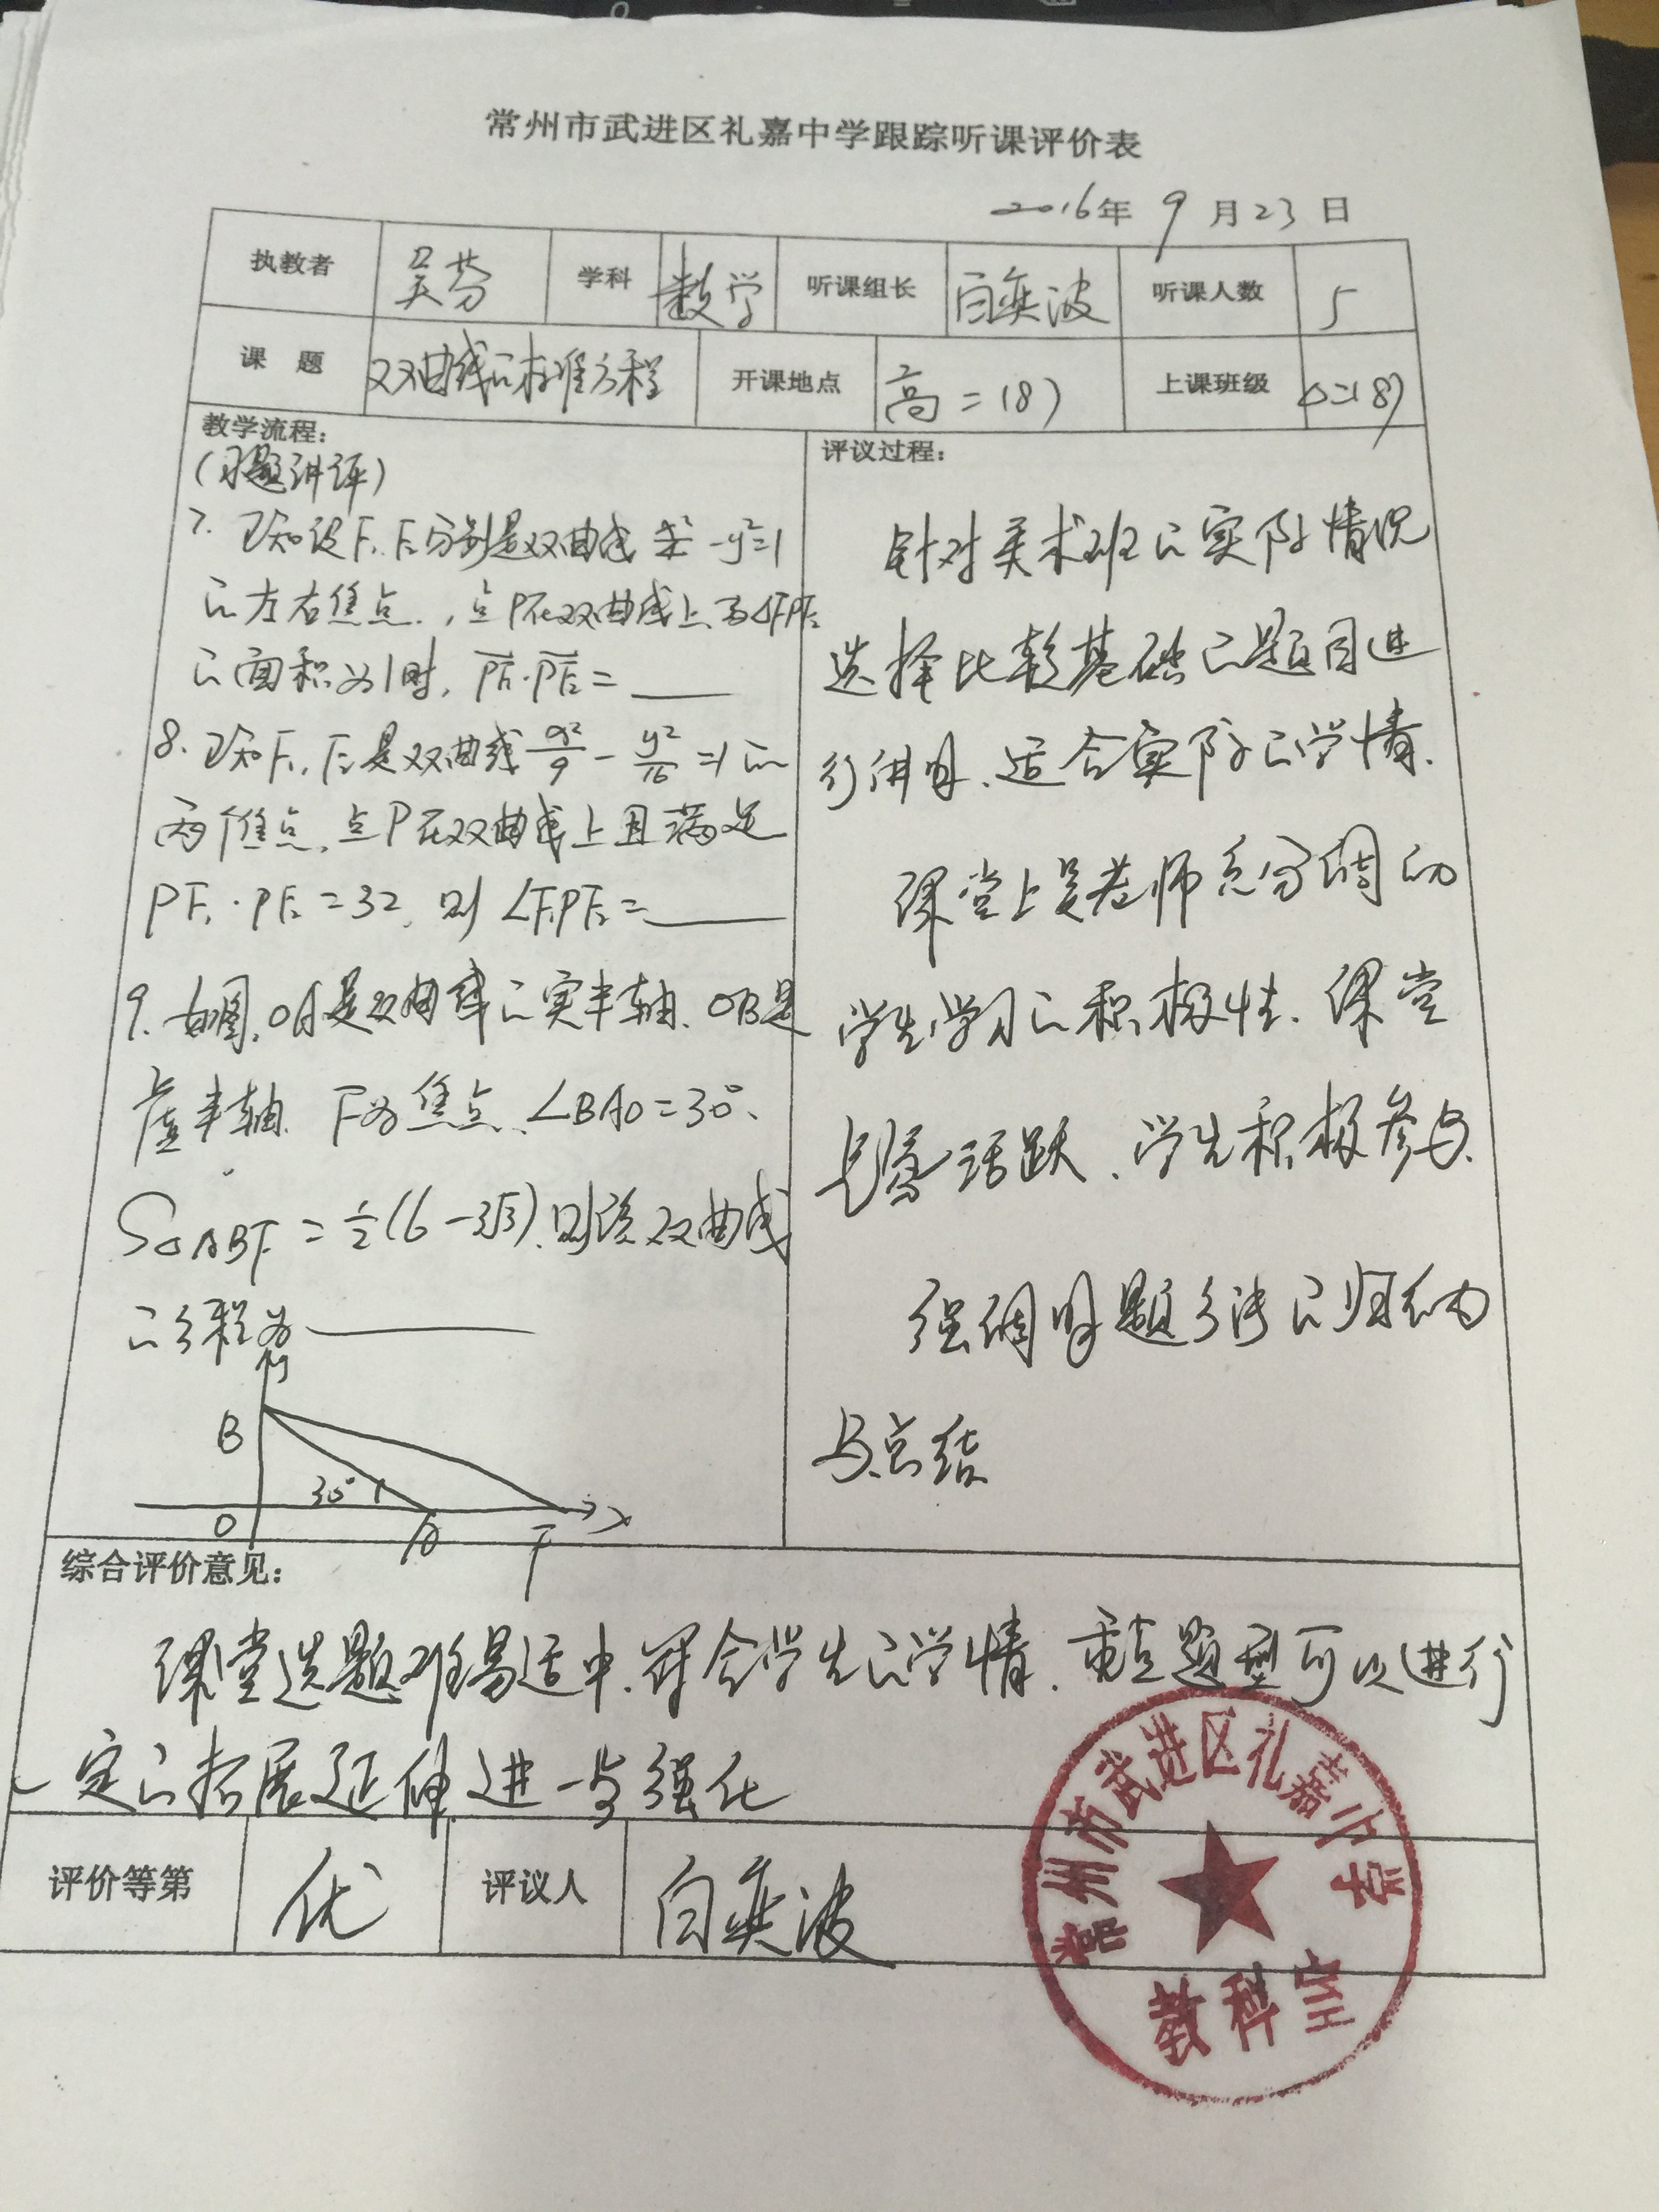 常州市武进区礼嘉中学跟踪听课评价表
2016年 9 月 23 日
执教者 吴芬 学科 数学 听课组长 白奕波 听课人数 5
课 题 双曲线的标准方程 开课地点 高二(8) 上课班级 高二(8)
教学流程:
(习题讲评)
7. 已知设F₁,F₂分别是双曲线 -y²=1
的左右焦点.,点P在双曲线上,当△F₁PF₂
的面积为1时, PF₁·PF₂=____
8. 已知F₁,F₂是双曲线x²/9 - y²/16 =1的
两个焦点,点P在双曲线上且满足
PF₁·PF₂=32,则∠F₁PF₂=____
9. 如图,OA是双曲线的实半轴、OB是
虚半轴、F为焦点、∠BAO=30°、
S△ABF=1/2(6-3√3).则该双曲线
的方程为____
y
B
30°
O A F x
评议过程:
针对美术班的实际情况
选择比较基础的题目进
行讲解、适合实际的学情.
课堂上吴老师充分调动
学生学习的积极性、课堂
活跃、学生积极参与.
强调解题方法的归纳
与总结
综合评价意见:
课堂选题难易适中.符合学生的学情.重点题型可以进行
一定的拓展延伸,进一步强化
评价等第 优 评议人 白奕波
常州市武进区礼嘉中学
教科室